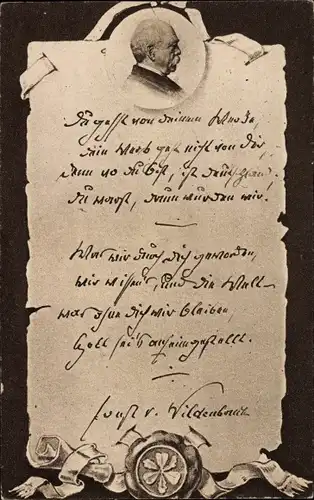 Du gehst von deinem Werke,
dein Werk geht nicht von dir,
denn wo du bist, ist Deutschland,
du warst, drum wurden wir.
Was wir durch dich geworden,
wir wissen's und die Welt
was ohne dich wir bleiben,
Gott sei's anheimgestellt.
Ernst v. Wildenbruch